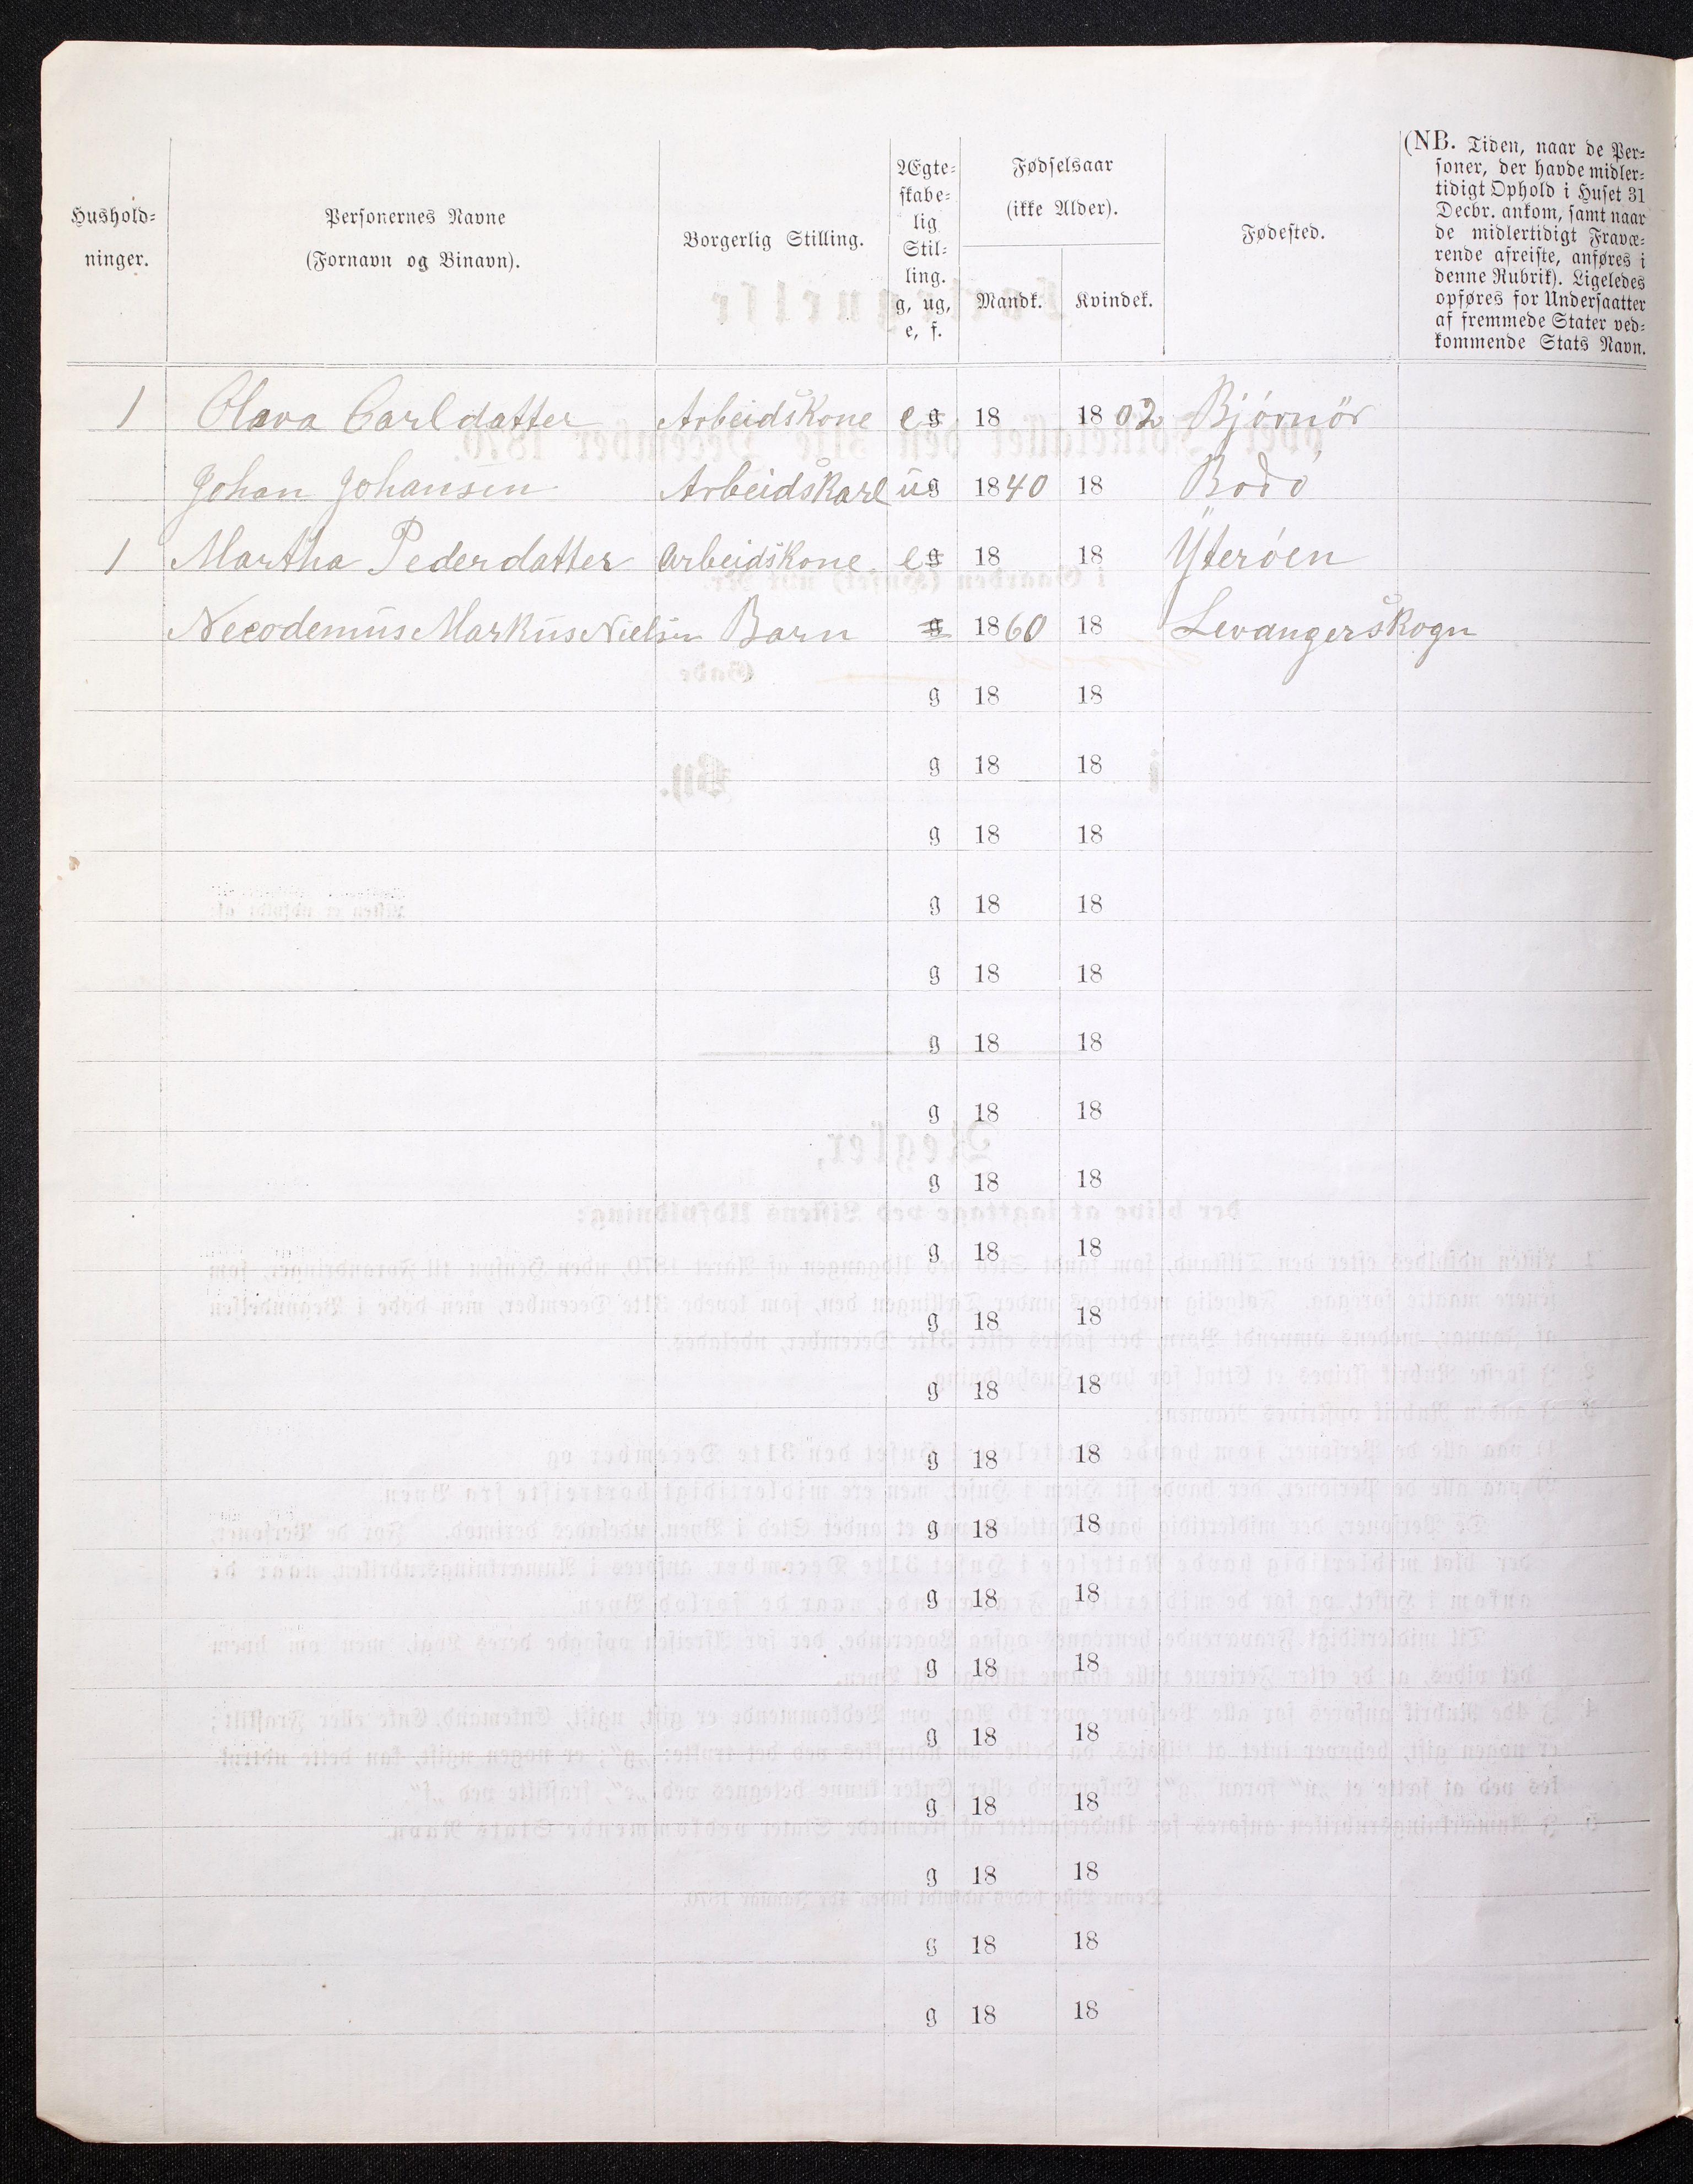 Hushold-
ninger.
Personernes Navne
(Fornavn og Binavn).
Borgerlig Stilling.
Ægte-
skabe-
lig
Stil-
ling.
g, ug,
e, f.
Fødselsaar
(ikke Alder).
Mandk.
Kvindek.
Fødested.
(NB. Tiden, naar de Per-
soner, der havde midler-
tidigt Ophold i Huset 31
Decbr. ankom, samt naar
de midlertidigt Fravæ-
rende afreiste, anføres i
denne Rubrik). Ligeledes
opføres for Undersaatter
af fremmede Stater ved-
kommende Stats Navn.
1 Olava Carldatter Arbeidskone e g 18 1802 Bjørnör
Johan Johansen Arbeidskarl ug 1840 18 Bodø
1 Martha Pederdatter Arbeidskone e g 18 18 Yterøen
Necodemus Markus Nielsen Barn g 1860 18 Levangerskogn
g 18 18
g 18 18
g 18 18
g 18 18
g 18 18
g 18 18
g 18 18
g 18 18
g 18 18
g 18 18
g 18 18
g 18 18
g 18 18
g 18 18
g 18 18
g 18 18
g 18 18
g 18 18
g 18 18
g 18 18